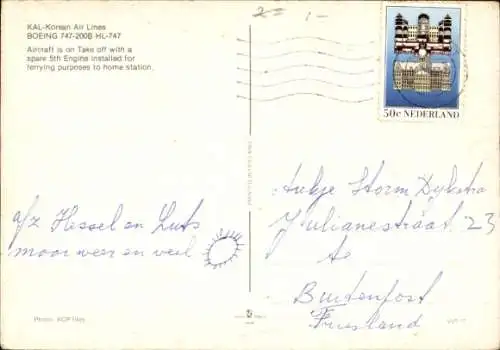 KAL-Korean Air Lines
BOEING 747-200B HL-747
Aircraft is on Take off with a
spare 5th Engine installed for
ferrying purposes to home station.
2= 1-
50c NEDERLAND
a/z Hessel en Luts
moor weer en veul
Storm Dykstra
Julianestráat 23
te
Buitenpost
Friesland
Photo: